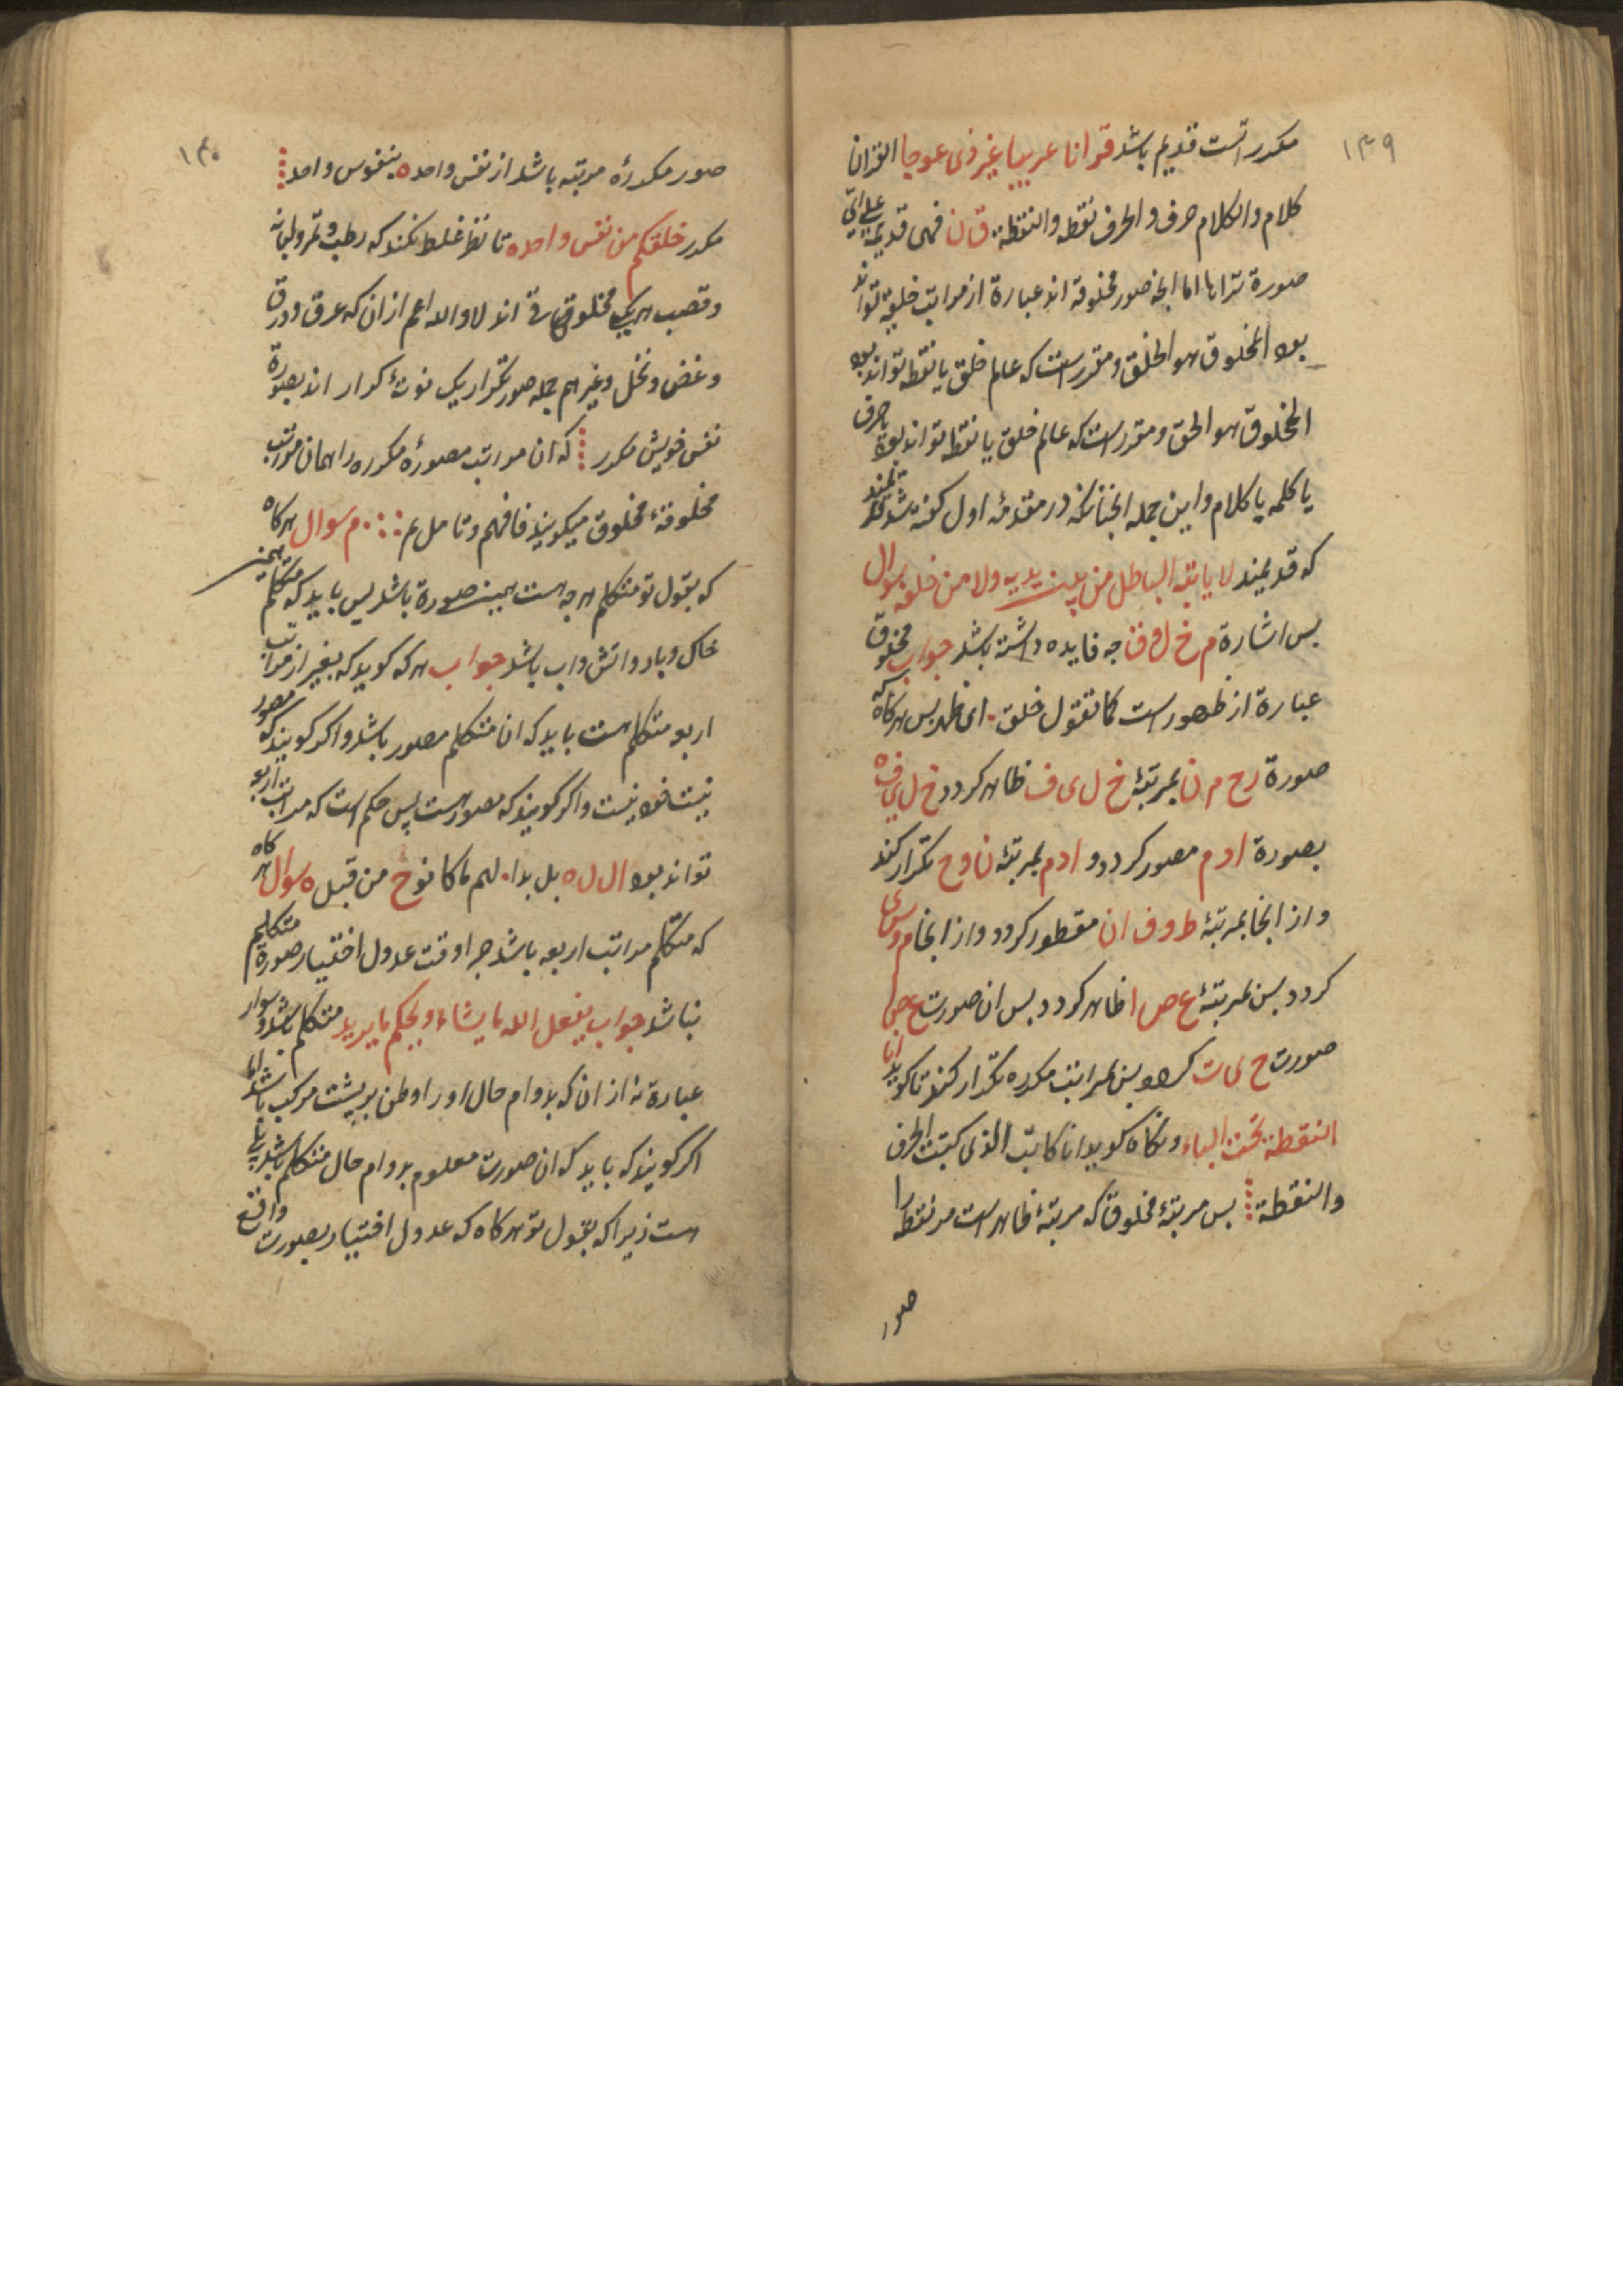 ۱۳۹
مکرر است قدیم باشد قرانا عربیا غیر ذی عوجا القران
کلام والکلام حرف والحرف نقطه والنقطة ق ن فهی قدیمة علی ای
صورة تراها اما انجه صور مخلوقه اند عبارة از مراتب خلیقه تواند
بود المخلوق هو الخلق ومقرر است که عالم خلق یا نقطه تواند بود
المخلوق هو الحق ومقرر است که عالم خلق یا نقطه تواند بود یا حرف
یا کلمه یا کلام واین جمله انجنانکه در مقدمهٔ اول کفته شد قدیمند
که قدیمند لا یاتیه الباطل من بین یدیه ولا من خلفه سوال
بس اشارة م خ ل و ق جه فایده داشته باشد جواب مخلوق
عبارة از ظهور است کما تقول خلق ای ظهر بس هرکاه که
صورة رح م ن بمرتبهٔ خ ل ی ف ظاهر کردد خ ل ی ف ه
بصورة ادم مصور کردد و ادم بمرتبهٔ ن و ح تکرار کند
و از انجا بمرتبهٔ ط و ف ان مقطور کردد و از انجا م و س ی
کردد بس بمرتبهٔ ع ص ا ظاهر کردد بس ان صورت ع ص ا
صورت ح ی ت کردد بس بمراتب مکرره تکرار کند تا کوید انا
النقطة تحت الباء و نکاه کوید انا کاتب الذی کتبت الحرف
والنقطة بس مرتبهٔ مخلوق که مرتبهٔ ظاهر است مر نقطه را
صور
۱۴۰
صور مکررهٔ مرتبه باشد از نفس واحده بنفوس واحد
مکرر خلقکم من نفس واحده تا نظر غلط نکند که رطب و تمر و لبانه
وقصب هریک مخلوق اند لا والله اعم ازان که عرق وورق
وغض ونخل وغیرهم جمله صور تکرار یک نوتهٔ کرار اند بصورة
نفس خویش مکرر که ان مراتب مصورهٔ مکرره را همان مراتب
مخلوقهٔ مخلوق میکویند فافهم وتامل م سوال هرکاه
که بقول تو متکلم هرجه هست بهمین صورة باشد بس باید که متکلم همین
خاک وباد واتش واب باشد جواب هرکه کوید که بغیر از مراتب
اربع متکلم هست باید که ان متکلم مصور باشد واکر کویند که مصور
نیست خود نیست واکر کویند که مصور است بس حکم است که مراتب اربع
تواند بود ال ل ه بل بدا لهم ما کانوا ح من قبل ه سوال هرکاه
که متکلم مراتب اربعه باشد جرا وقت عدول اختیار صورة متکلم
نباشد جواب یفعل الله ما یشاء ویحکم ما یرید متکلم باشد وسوار
عبارة نه ازان که بدوام حال او را وطن بر پشت مرکب باشد اما
اکر کویند که باید که ان صورت معلوم بدوام حال متکلم باشد بلی
هست زیرا که بقول تو هرکاه که عدول اختیار بصورت واقع